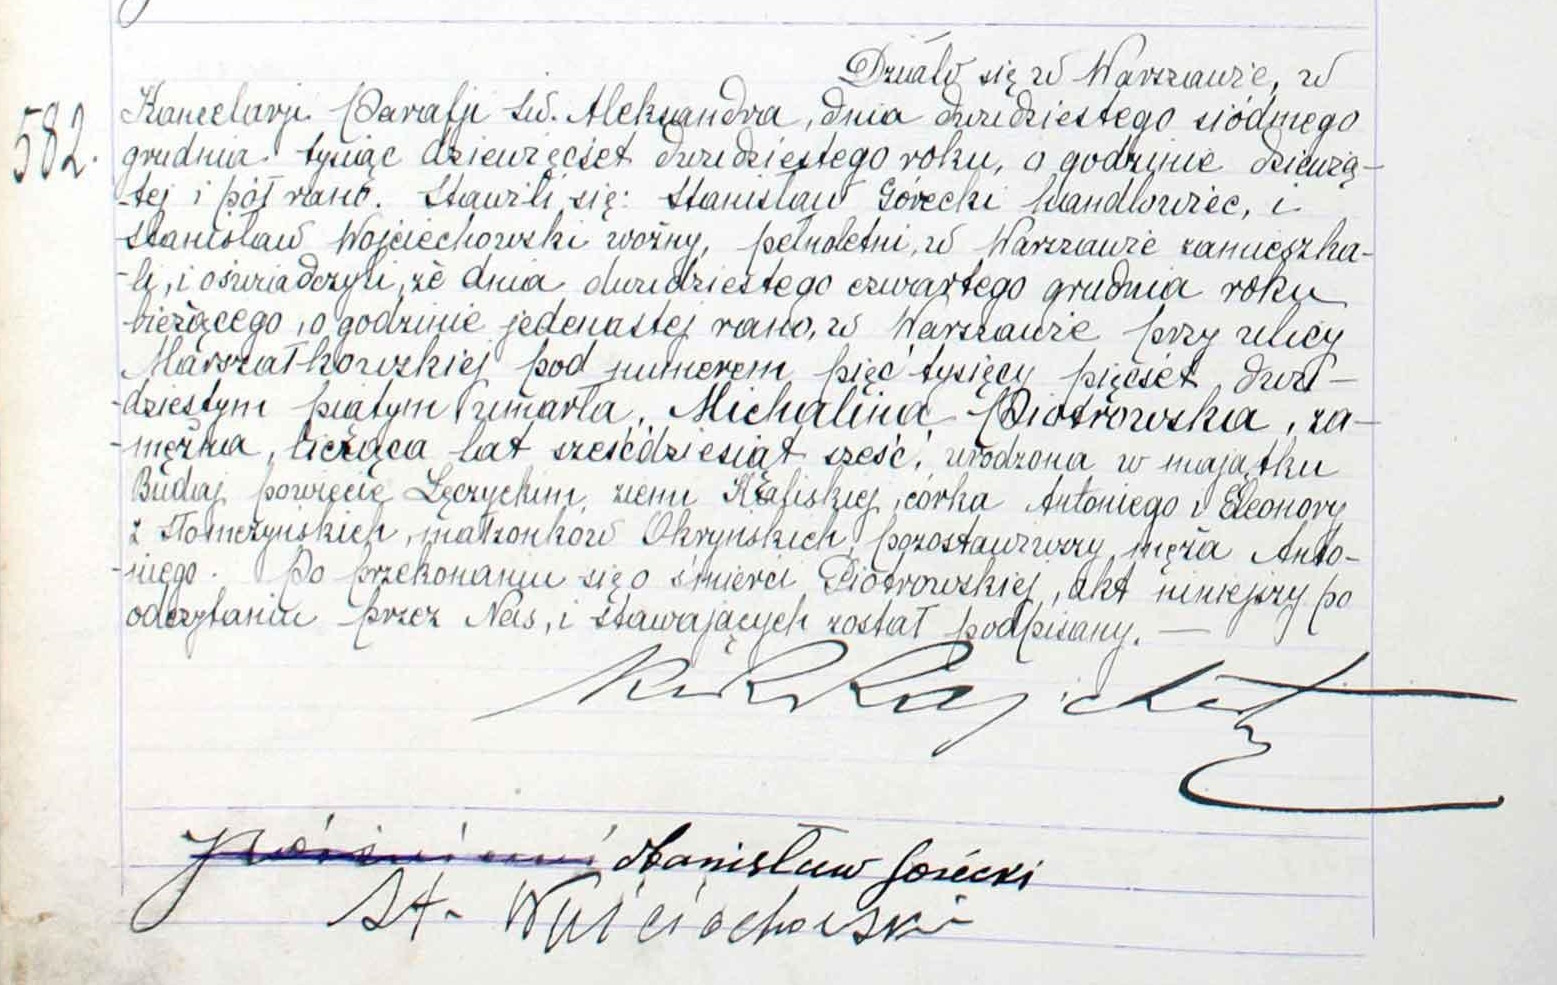 Działo się w Warszawie, w
582. Kancelarji Parafji św. Aleksandra, dnia dwudziestego siódmego
grudnia tysiąc dziewięcset dwudziestego roku, o godzinie dziewią-
-tej i pół rano. Stawili się: Stanisław Górecki handlowiec, i
Stanisław Wojciechowski woźny, pełnoletni, w Warszawie zamieszka-
-li, i oświadczyli, że dnia dwudziestego czwartego grudnia roku
bieżącego, o godzinie jedenastej rano, w Warszawie przy ulicy
Marszałkowskiej pod numerem pięć tysięcy pięćset dwu-
-dziestym piątym umarła, Michalina Piotrowska, za-
-mężna, licząca lat sześćdziesiąt sześć, urodzona w majątku
Budaj powiecie Łęczyckim, ziemi Kaliskiej, córka Antoniego i Eleonory
z Słomczyńskich, małżonków Okryńskich, pozostawiwszy męża Anto-
-niego. Po przekonaniu się o śmierci Piotrowskiej, akt niniejszy po
odczytaniu przez Nas, i stawających został podpisany. —
Stanisław Górecki
St. Wojciechowski